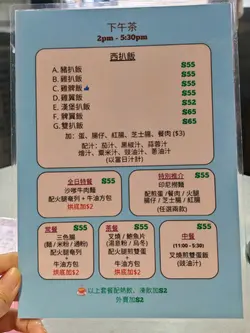 下午茶
2pm - 5:30pm
西扒飯
A. 豬扒飯 $55
B. 雞扒飯 $55
C. 雞髀飯 $55
D. 雞翼飯 $55
E. 漢堡扒飯 $52
F. 髀翼飯 $65
G. 雙扒飯 $65
加：蛋、腸仔、紅腸、芝士腸、餐肉 ($3)
配汁：茄汁、黑椒汁、蒜蓉汁
燴汁、粟米汁、豉油汁、蔥油汁
(以當日汁計)
全日特餐 $55
沙嗲牛肉麵
配火腿奄列 + 牛油方包
烘底加$2
特別推介 $55
印尼撈麵
配煎蛋 /餐肉 / 火腿
腸仔 / 芝士腸 / 紅腸
(任選兩款)
常餐 $55
三色腸
(麵 / 米粉 / 通粉)
配火腿奄列
+ 牛油方包
烘底加$2
茶餐 $55
叉燒 / 鮑魚片
(湯意粉 / 烏冬)
配火腿煎雙蛋
+
牛油方包
烘底加$2
中餐
(11:00 - 5:30)
叉燒煎雙蛋飯
(豉油汁)
以上套餐配熱飲、凍飲加$2
外賣加$2